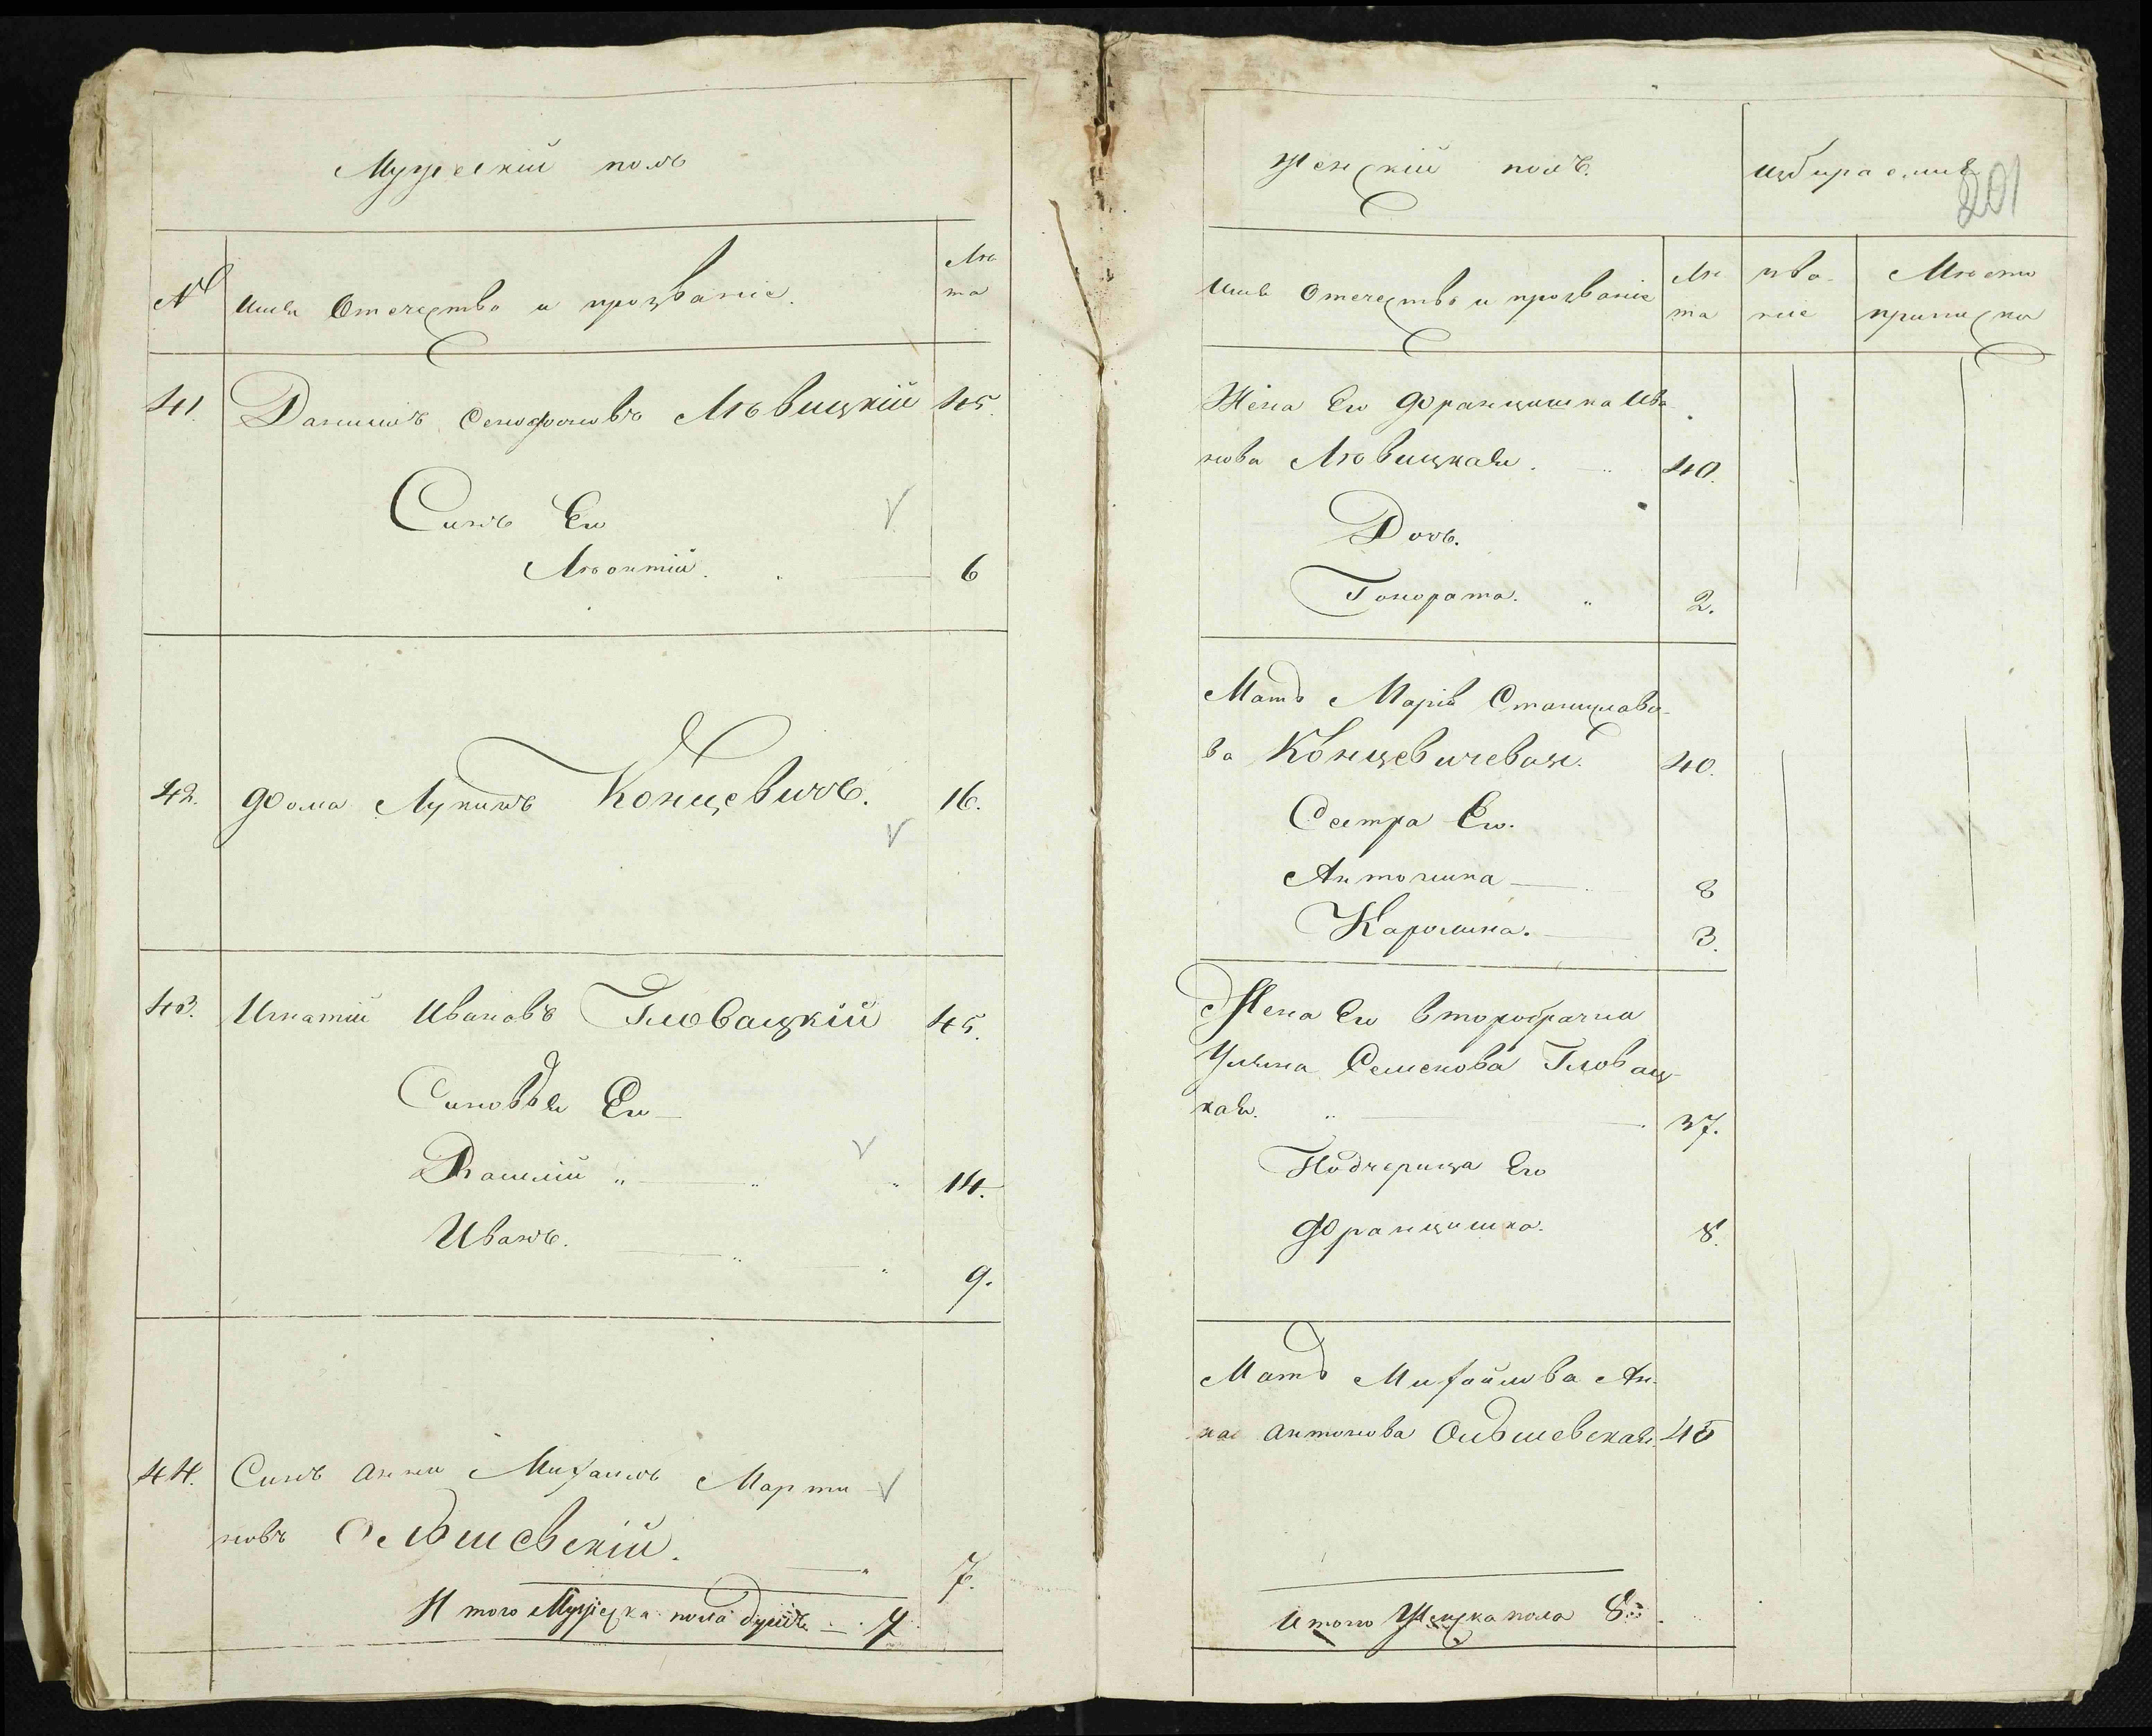 Мужескій полъ
№ Имя Отечество и прозваніе. Лѣ
та
41. Данилъ Сенофоновъ Лѣвицкій 45.
Синъ Его
Лѣонтій. 6
42. Фома Лукинъ Концевичъ. 16.
43. Игнатій Ивановъ Гловацкій 45.
Синовья Его
Василій 14.
Иванъ. 9.
44. Синъ Анни Михаилъ Марти
новъ Ольшевскій. 7.
Итого Мужеска пола душъ 7
Женскій полъ. Избираемие
201
Имя Отечество и прозваніе Лѣ
та
зва-
ніе
Место
приписки
Жена Его Францишка Ива
нова Лѣвицкая. 40.
Дочь.
Гонората. 2.
Мать Марія Станиславо-
ва Концевичевая. 40.
Сестра Его.
Антонина 8
Каролина. 3.
Жена Его второбрачна
Уляна Семенова Гловац-
кая. 37.
Подчерица Его
Францишка. 8.
Мать Михайлова Ан-
на Антонова Ольшевская 45
Итого Женска пола 8.